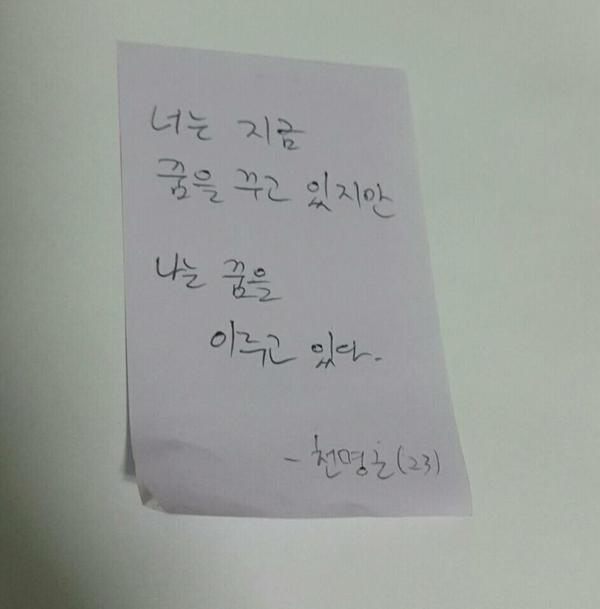 너는 지금
꿈을 꾸고 있지만
나는 꿈을
이루고 있다.
- 천명훈(23)